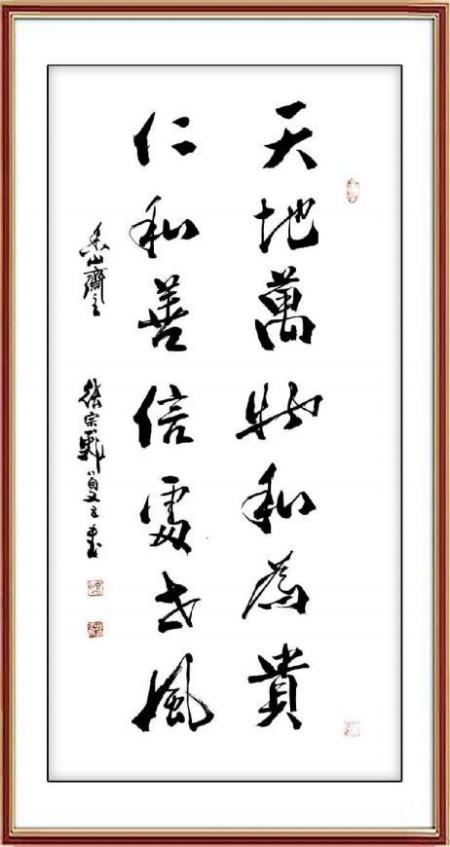 天地萬物和為貴
仁和善信處世風
山齋主 張宗